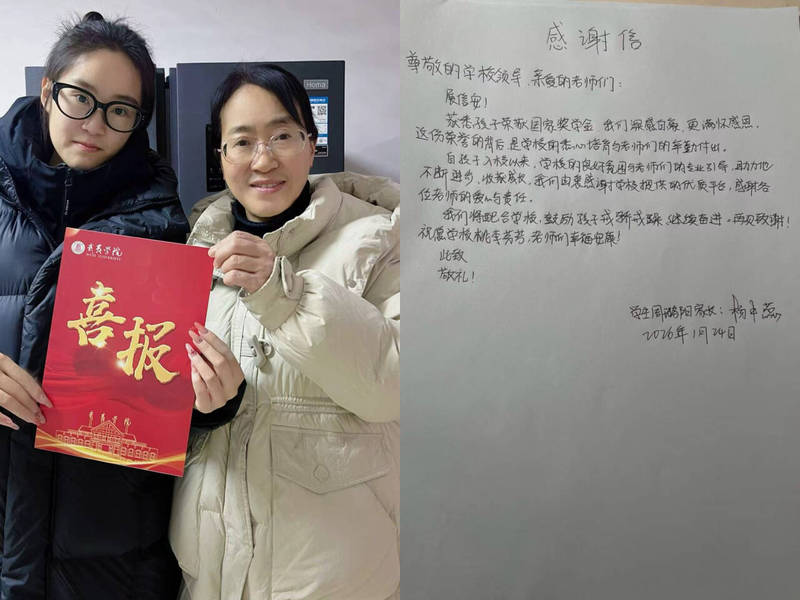 Homa
武夷学院
WUYI UNIVERSITY
喜报
武夷学院
感谢信
尊敬的学校领导、亲爱的老师们：
展信安！
获悉孩子荣获国家奖学金，我们深感自豪，更满怀感恩。
这份荣誉的背后，是学校的悉心培育与老师们的辛勤付出。
自孩子入校以来，学校的良好氛围与老师们的专业引导，助力他
不断进步，收获成长，我们由衷感谢学校提供的优质平台，感谢各
位老师的爱心与责任。
我们将配合学校，鼓励孩子戒骄戒躁、继续奋进。再次致谢！
祝愿学校桃李芬芳，老师们幸福安康！
此致
敬礼！
学生周 家长：杨
2026年1月24日